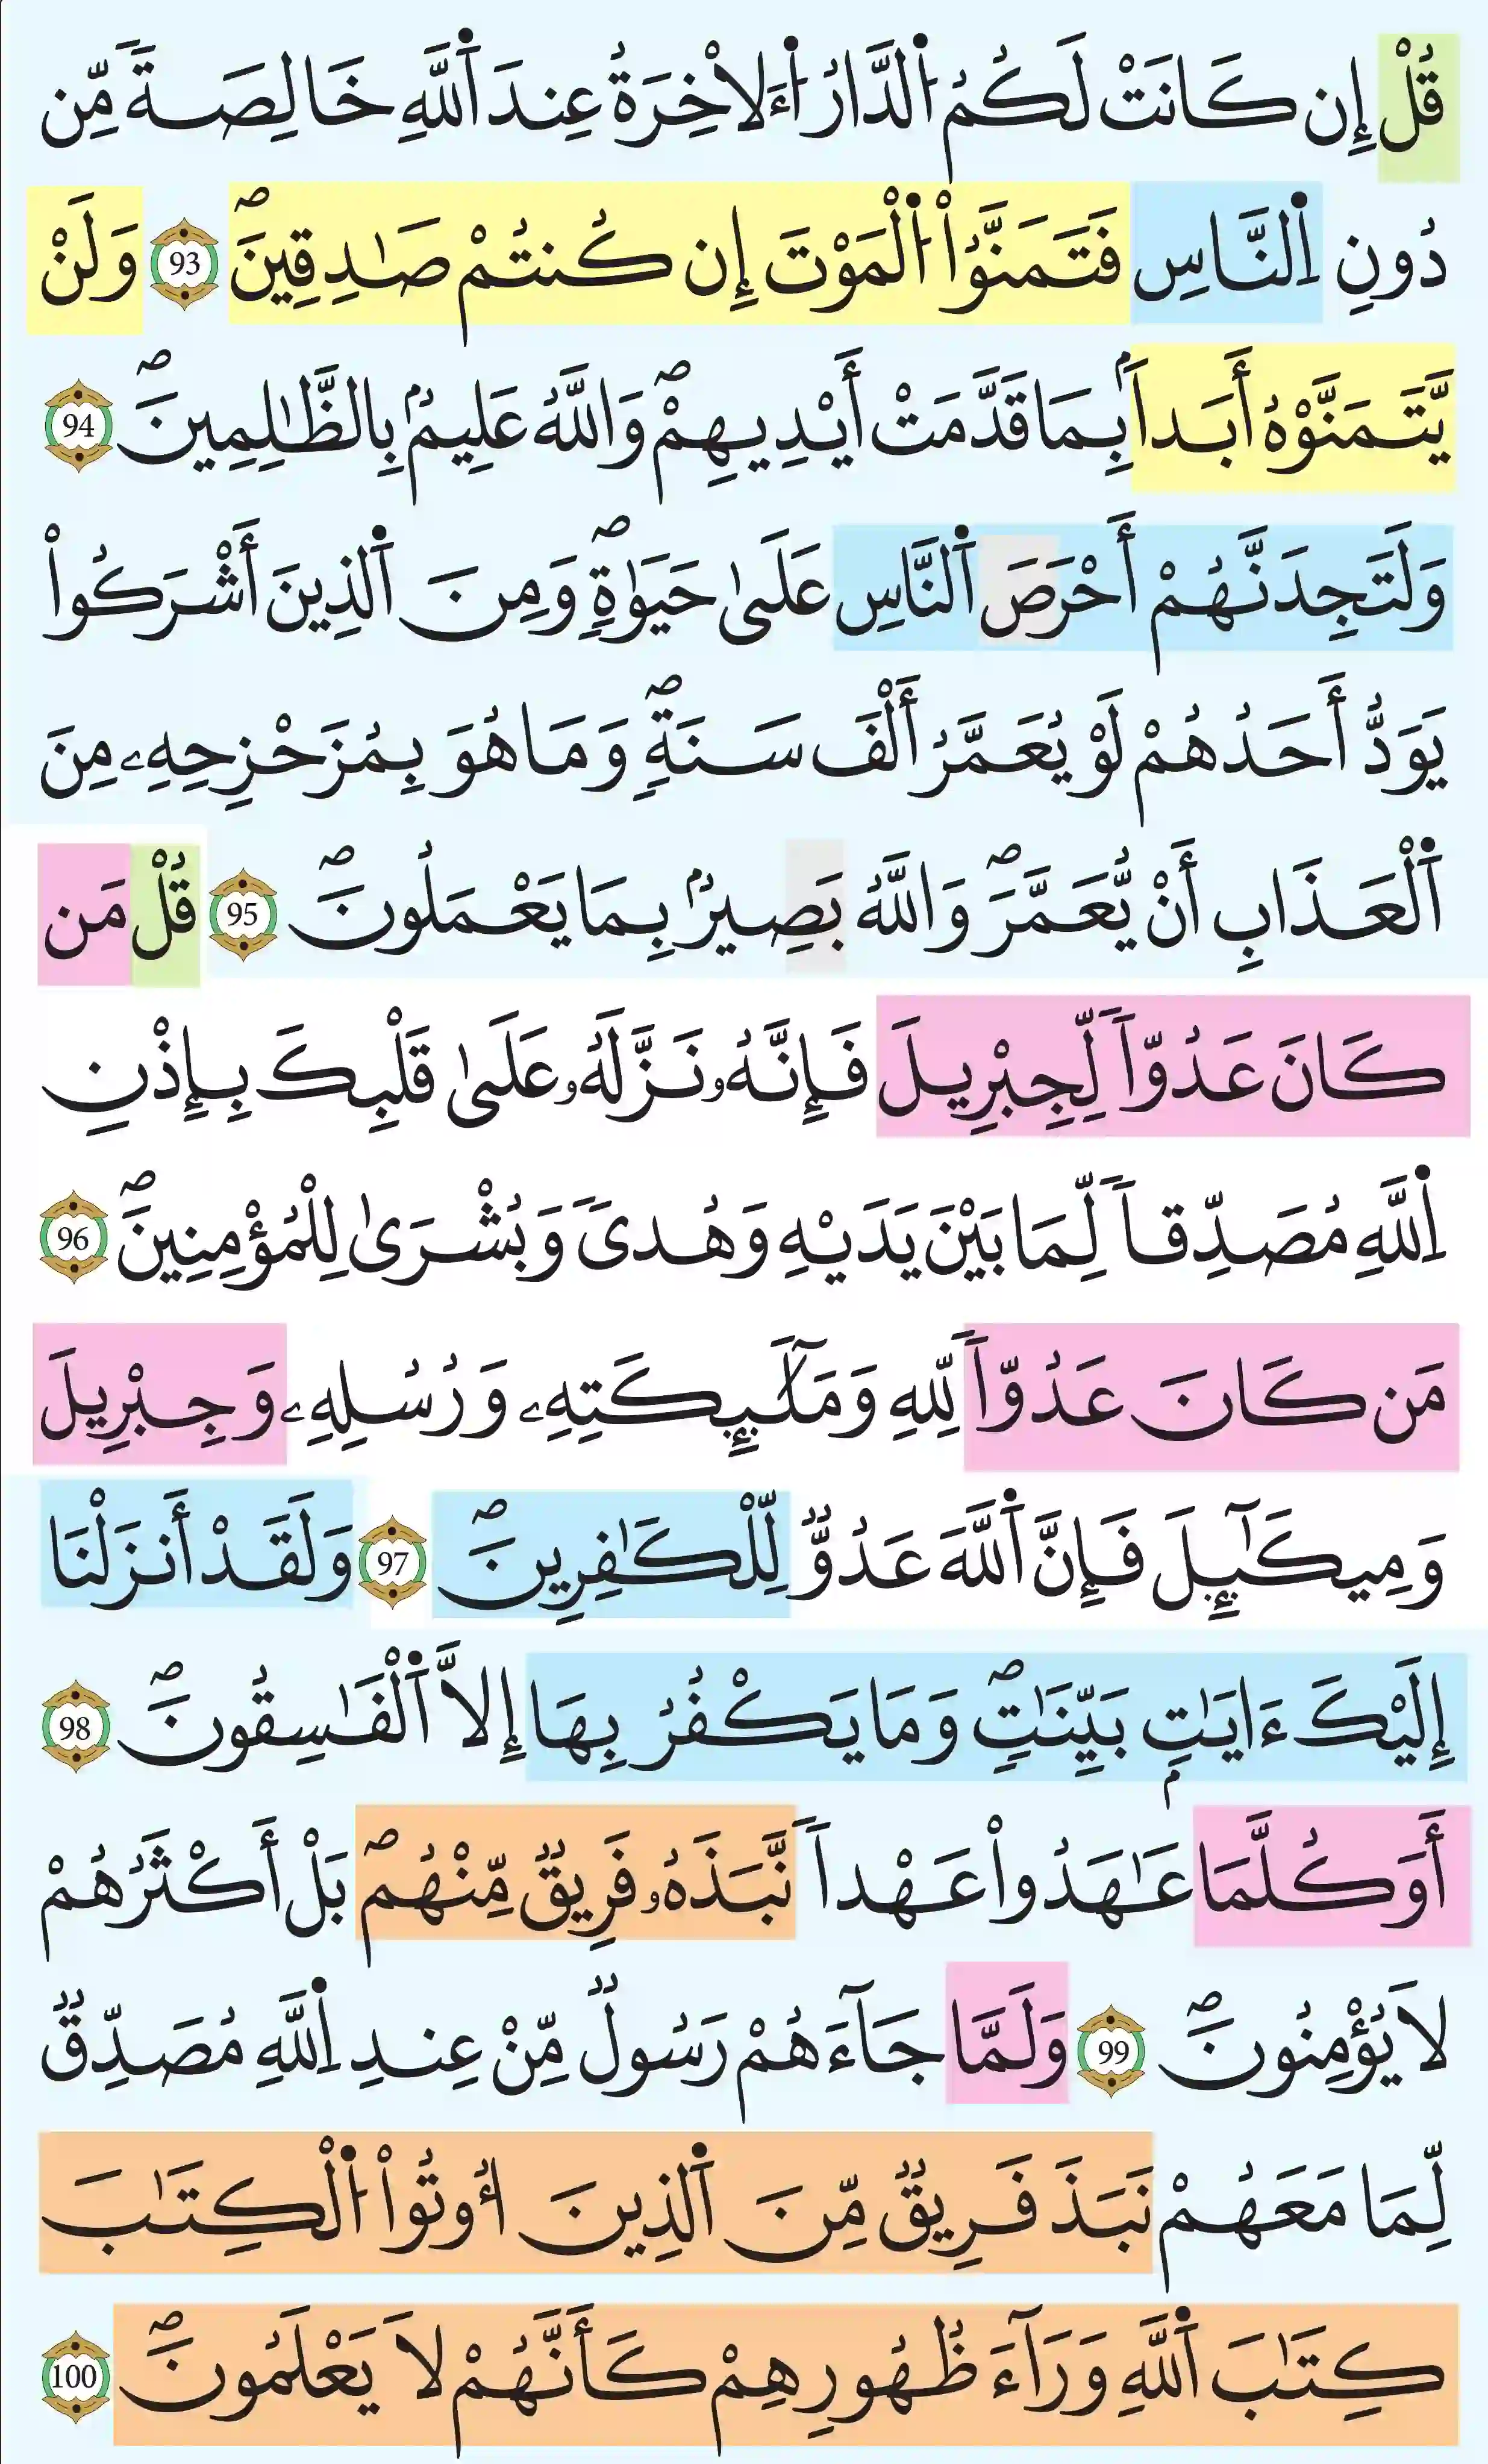 قُلْ إِن كَانَتْ لَكُمُ اُ۬لدَّارُ اُ۬لَاخِرَةُ عِندَ اَ۬للَّهِ خَالِصَةٗ مِّن
دُونِ اِ۬لنَّاسِ فَتَمَنَّوُاْ اُ۬لْمَوْتَ إِن كُنتُمْ صَٰدِقِينَۖ 93 وَلَنْ
يَّتَمَنَّوْهُ أَبَداَۢ بِمَا قَدَّمَتْ أَيْدِيهِمْۖ وَاللَّهُ عَلِيمُۢ بِالظَّٰلِمِينَۖ 94
وَلَتَجِدَنَّهُمْ أَحْرَصَ اَ۬لنَّاسِ عَلَىٰ حَيَوٰةٖۖ وَمِنَ اَ۬لذِينَ أَشْرَكُواْ
يَوَدُّ أَحَدُهُمْ لَوْ يُعَمَّرُ أَلْفَ سَنَةٖۖ وَمَا هُوَ بِمُزَحْزِحِهِۦ مِنَ
اَ۬لْعَذَابِ أَنْ يُّعَمَّرَۖ وَاللَّهُ بَصِيرُۢ بِمَا يَعْمَلُونَۖ 95 قُلْ مَن
كَانَ عَدُوّاٗ لِّجِبْرِيلَ فَإِنَّهُۥ نَزَّلَهُۥ عَلَىٰ قَلْبِكَ بِإِذْنِ
اِ۬للَّهِ مُصَدِّقاٗ لِّمَا بَيْنَ يَدَيْهِ وَهُدىٗ وَبُشْرَىٰ لِلْمُؤْمِنِينَۖ 96
مَن كَانَ عَدُوّاٗ لِّلهِ وَمَلَٰٓئِكَتِهِۦ وَرُسُلِهِۦ وَجِبْرِيلَ
وَمِيكَٰٓئِلَ فَإِنَّ اَ۬للَّهَ عَدُوّٞ لِّلْكَٰفِرِينَۖ 97 وَلَقَدْ أَنزَلْنَا
إِلَيْكَ ءَايَٰتِۢ بَيِّنَٰتٖۖ وَمَا يَكْفُرُ بِهَا إِلَّا اَ۬لْفَٰسِقُونَۖ 98
أَوَكُلَّمَا عَٰهَدُواْ عَهْداٗ نَّبَذَهُۥ فَرِيقٞ مِّنْهُمۖ بَلْ أَكْثَرُهُمْ
لَا يُؤْمِنُونَۖ 99 وَلَمَّا جَآءَهُمْ رَسُولٞ مِّنْ عِندِ اِ۬للَّهِ مُصَدِّقٞ
لِّمَا مَعَهُمْ نَبَذَ فَرِيقٞ مِّنَ اَ۬لذِينَ أُوتُواْ اُ۬لْكِتَٰبَ
كِتَٰبَ اَ۬للَّهِ وَرَآءَ ظُهُورِهِمْ كَأَنَّهُمْ لَا يَعْلَمُونَۖ 100